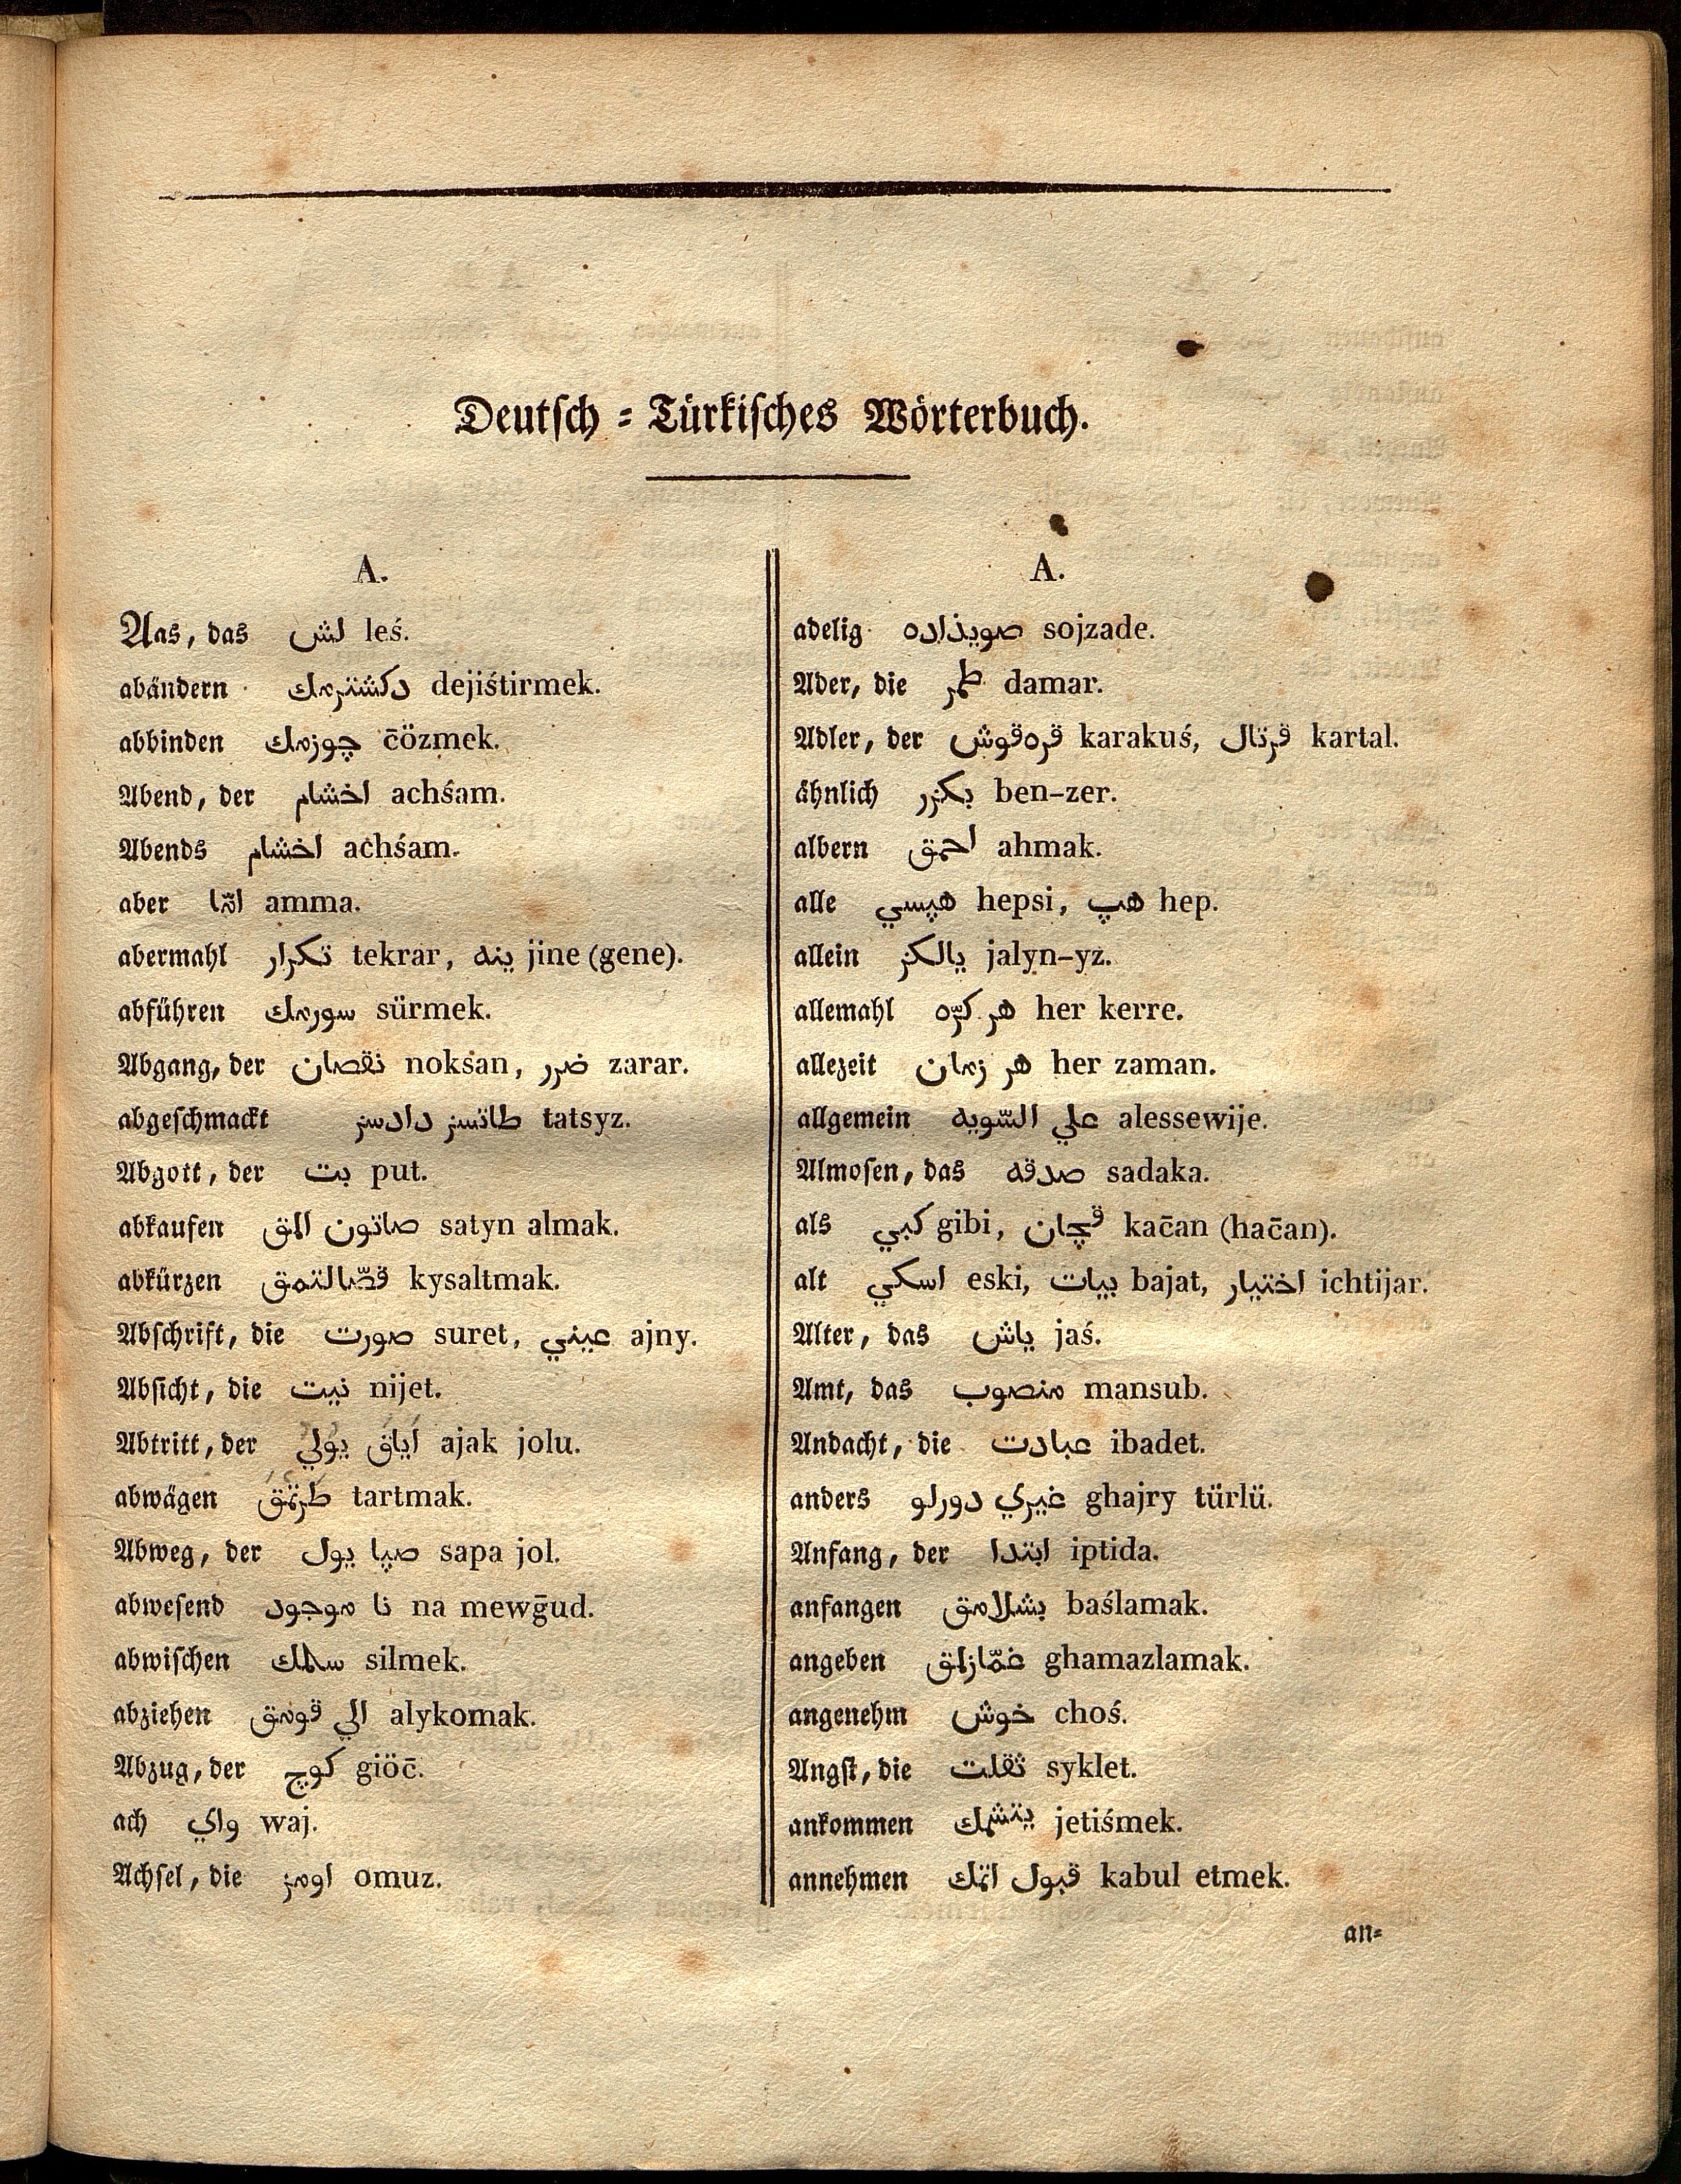 Deutsch-Türkisches Wörterbuch.
A.
Aas, das لش leś.
abändern دكشترمك dejiśtirmek.
abbinden چوزمك c̄özmek.
Abend, der اخشام achśam.
Abends اخشام achśam.
aber امّا amma.
abermahl تكرار tekrar, ينه jine (gene).
abführen سورمك sürmek.
Abgang, der نقصان noksan, ضرر zarar.
abgeschmackt طاتسز دادسز tatsyz.
Abgott, der بت put.
abkaufen صاتون المق satyn almak.
abkürzen قصّالتمق kysaltmak.
Abschrift, die صورت suret, عيني ajny.
Absicht, die نيت nijet.
Abtritt, der اياق يولي ajak jolu.
abwägen طرتمق tartmak.
Abweg, der صپا يول sapa jol.
abwesend نا موجود na mewḡud.
abwischen سلمك silmek.
abziehen الي قومق alykomak.
Abzug, der كوچ giöc̄.
ach واي waj.
Achsel, die اومز omuz.
A.
adelig صويذاده sojzade.
Ader, die طمر damar.
Adler, der قره‌قوش karakuś, قرتال kartal.
ähnlich بكزر ben-zer.
albern احمق ahmak.
alle هپسي hepsi, هپ hep.
allein يالكز jalyn-yz.
allemahl هر كرّه her kerre.
allezeit هر زمان her zaman.
allgemein علي السّويه alessewije.
Almosen, das صدقه sadaka.
als كبي gibi, قچان kac̄an (hac̄an).
alt اسكي eski, بيات bajat, اختيار ichtijar.
Alter, das ياش jaś.
Amt, das منصوب mansub.
Andacht, die عبادت ibadet.
anders غيري دورلو ghajry türlü.
Anfang, der ابتدا iptida.
anfangen بشلامق baślamak.
angeben غمّازلمق ghamazlamak.
angenehm خوش choś.
Angst, die ثقلت syklet.
ankommen يتشمك jetiśmek.
annehmen قبول اتمك kabul etmek.
an-